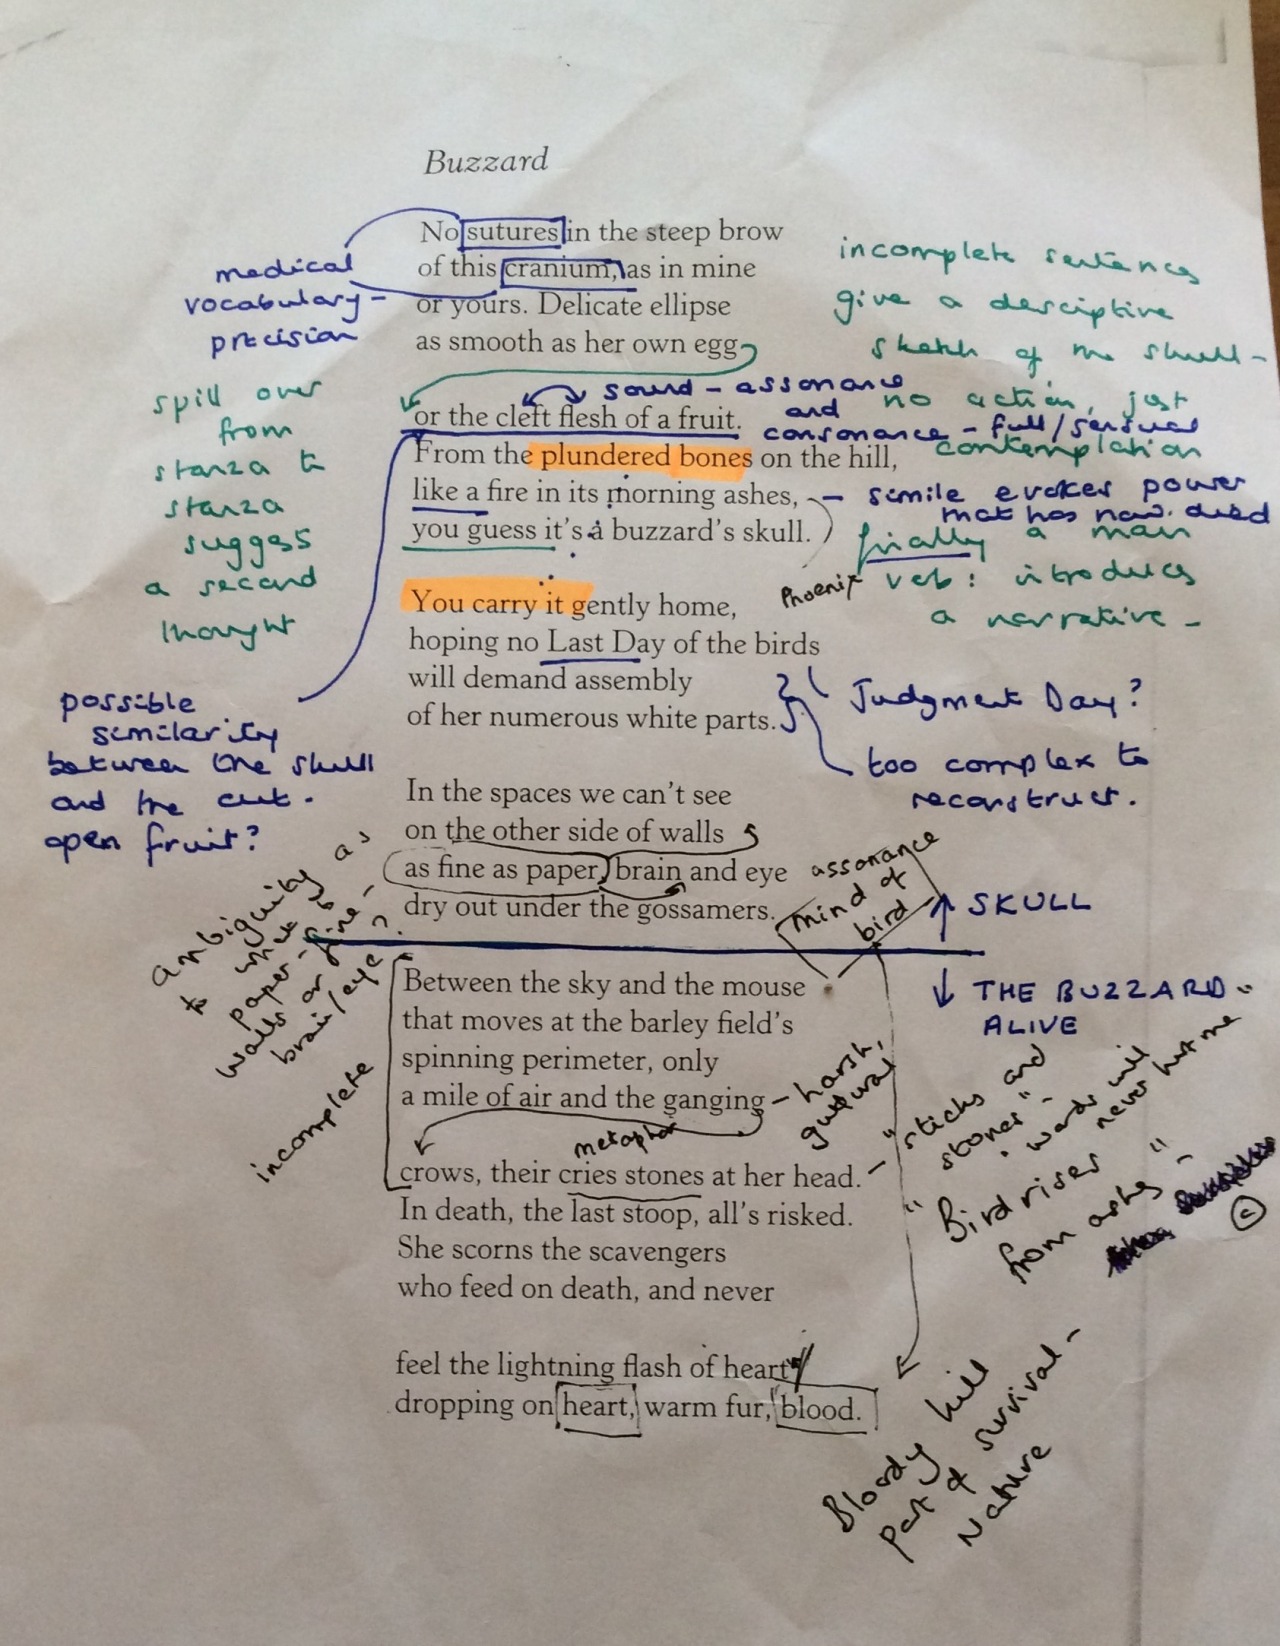 Buzzard
No sutures in the steep brow
of this cranium, as in mine
or yours. Delicate ellipse
as smooth as her own egg
or the cleft flesh of a fruit.
From the plundered bones on the hill,
like a fire in its morning ashes,
you guess it's a buzzard's skull.
You carry it gently home,
hoping no Last Day of the birds
will demand assembly
of her numerous white parts.
In the spaces we can't see
on the other side of walls
as fine as paper, brain and eye
dry out under the gossamers.
Between the sky and the mouse
that moves at the barley field's
spinning perimeter, only
a mile of air and the ganging
crows, their cries stones at her head.
In death, the last stoop, all's risked.
She scorns the scavengers
who feed on death, and never
feel the lightning flash of heart
dropping on heart, warm fur, blood.
medical
vocabulary -
precision
spill over
from
stanza to
stanza
suggess
a second
thought
possible
similarity
between the skull
and the cut.
open fruit?
ambiguity as
to what is
paper-fine -
walls or
brain/eye?
incomplete
incomplete sentences
give a desciptive
sketch of the skull -
no action, just
contemplation
sound - assonance
and
consonance - full/sensual
- simile evokes power
that has now died
Phoenix
finally a main
veb: introduces
a narrative -
Judgment Day?
too complex to
reconstruct.
assonance
mind of
bird
↑ SKULL
↓ THE BUZZARD
ALIVE
- harsh,
guttural
metaphor
- "sticks and
stones" -
words will
never hurt me
"Bird rises
from ashes" -
Bloody kill
part of survival -
Nature